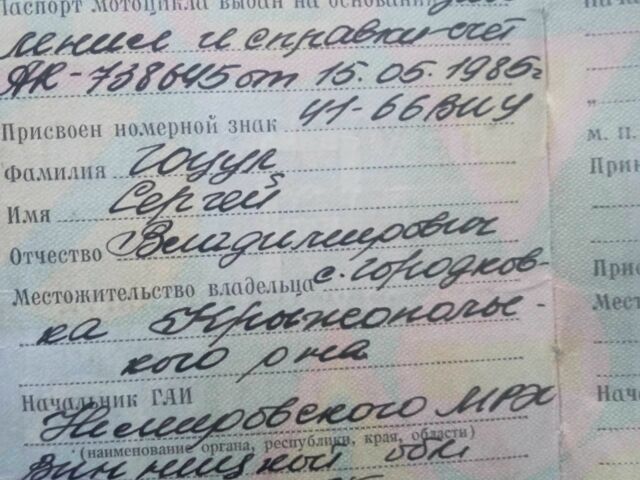 Паспорт мотоцикла выдан на основании
ления и справки-счет
АК-738645 от 15.05.1985г
Присвоен номерной знак 41-66 ВИУ
Фамилия Гоцул
Имя Сергей
Отчество Владимирович
Местожительство владельца с. Городков-
ка Крыжополь-
кого р-на
Начальник ГАИ
Немировского МРЭО
(наименование органа, республики, края, области)
Винницкой обл
м. п.